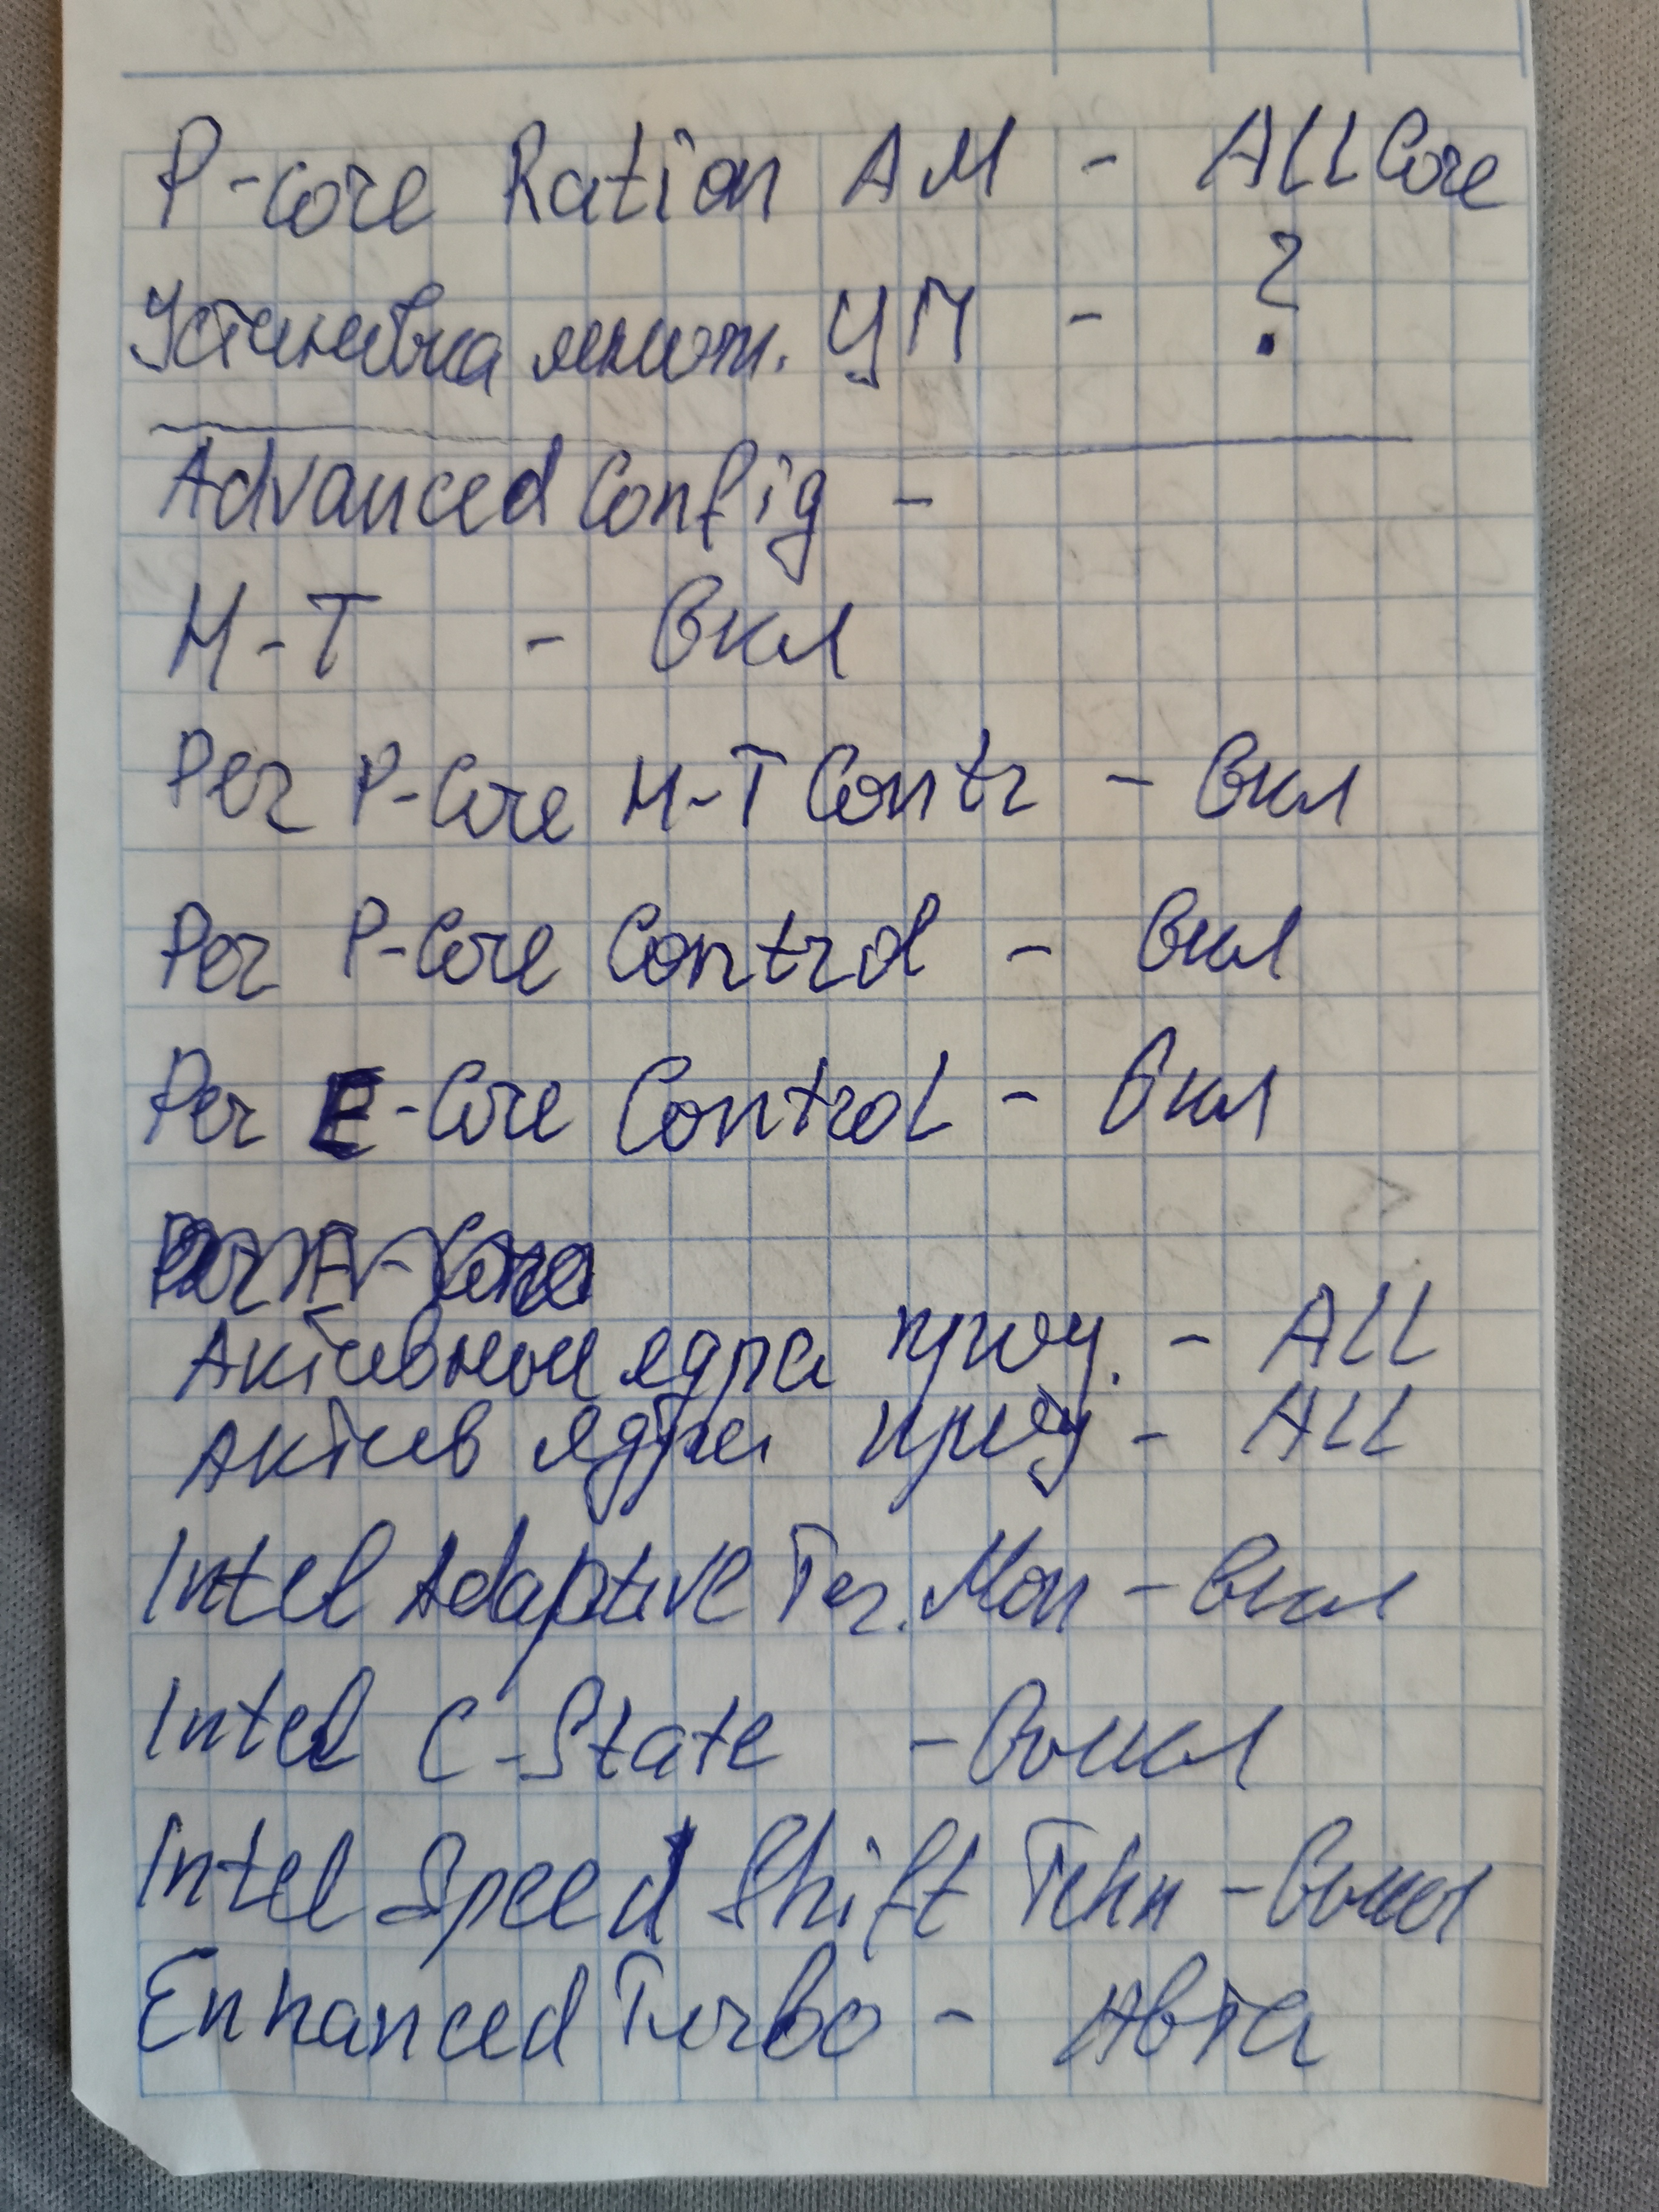 P-Core Ration AM - ALL Core
Установка множ. ЦП - ?
Advanced Config -
H-T - Вкл
Per P-Core H-T Contr - Вкл
Per P-Core Control - Вкл
Per E-Core Control - Вкл
Активные ядра - ALL
Актив ядра - ALL
Intel Adaptive Ter. Mon - Вкл
Intel C-State - Выкл
Intel Speed Shift Tehn - Выкл
Enhanced Turbo - Авто